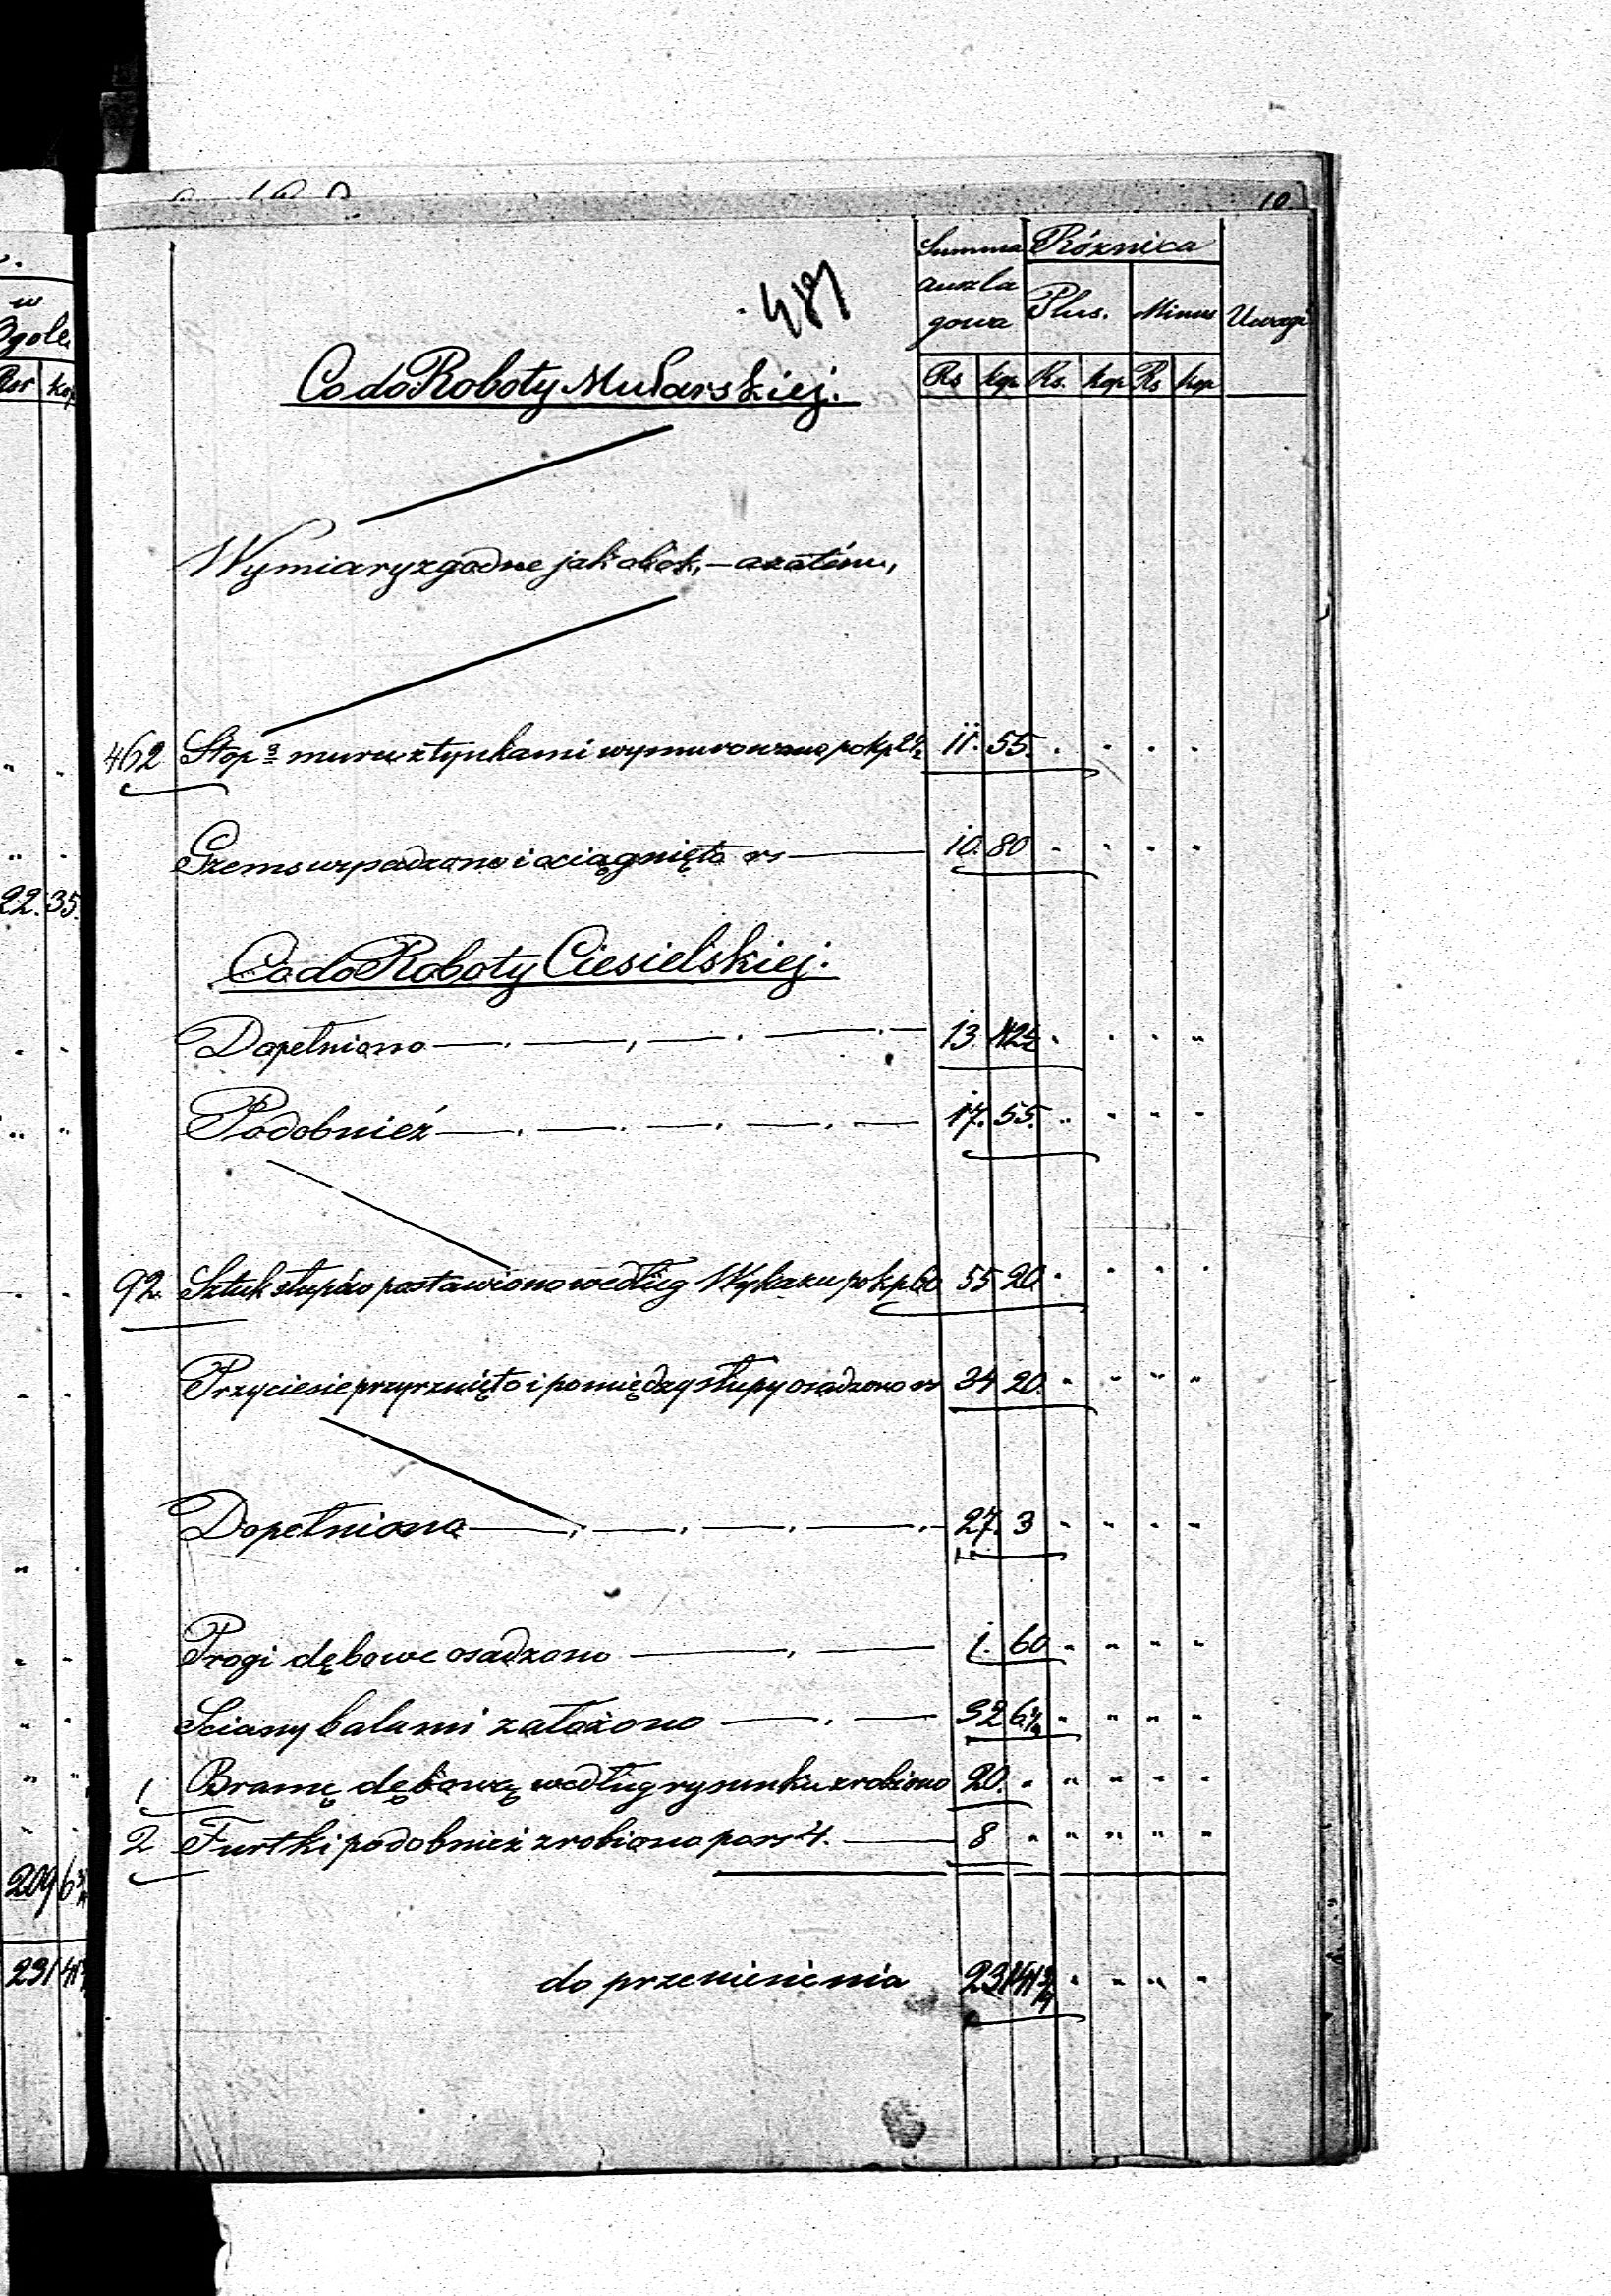 10
w
Ogole
Rsr kop
22. 35.
209 6 3/4
231 41 3/4
487
Summa auszlagowa Róznica
Plus. Minus Uwagi
Rs kop Rs. kop Rs kop
Co do Roboty Mularskiej.
Wymiary zgodne jak obok, – azatém,
462 Stop a muru z tynkami wymurowano, po kp 2 1/2 11. 55. " " " "
Gzems wypadzono i ociągnięto rs 10. 80 " " " "
Co do Roboty Ciesielskiej.
Dopełniono 13. 42 1/2 " " " "
Podobnież 17. 55. " " " "
92. Sztuk słupów postawiono według Wykazu po kp 60 55 20. " " " "
Przyciesie przyrznięto i pomiędzy słupy osadzono rs 34 20. " " " "
Dopełniono 27. 3 " " " "
Progi dębowe osadzono 1. 60 " " " "
Sciany balami założono 32 6 1/4 " " " "
1 Bramę dębową według rysunku zrobiono 20. " " " " "
2 Furtki podobnież zrobiono po rs 4. 8 " " " " "
do przeniesienia 231 41 3/4 " " " "